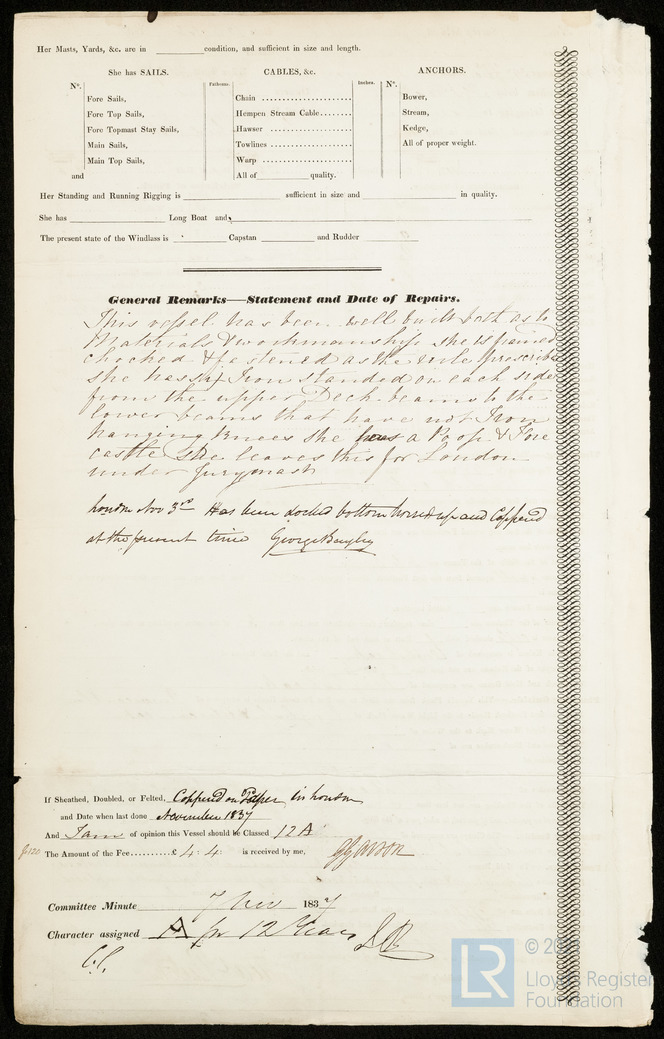 Her Masts, Yards, &c. are in condition, and sufficient in size and length.
She has SAILS. CABLES, &c. ANCHORS.
Nº. Fathoms. Inches. Nº.
Fore Sails, Chain Bower,
Fore Top Sails, Hempen Stream Cable Stream,
Fore Topmast Stay Sails, Hawser Kedge,
Main Sails, Towlines All of proper weight.
Main Top Sails, Warp
and All of quality.
Her Standing and Running Rigging is sufficient in size and in quality.
She has Long Boat and
The present state of the Windlass is Capstan and Rudder
General Remarks—Statement and Date of Repairs.
This vessel has been well built both as to
Materials & workmanship she is framed
chocked & fastened as the rule prescribes
she has six Iron standed on each side
from the upper Deck beams to the
lower beams that have not Iron
hanging knees she has a Poop & Fore
castle she leaves this for London
under Jurymast
London Nov 3rd Has been docked bottom and Coppered
at the present time George Bayley
If Sheathed, Doubled, or Felted, Coppered on Paper in London
and Date when last done November 1837
And I am of opinion this Vessel should be Classed 12 A
The Amount of the Fee £ 4 : 4 : is received by me,
Committee Minute 7 Nov 1837
Character assigned A for 12 Years
LR
©
Lloyd's Register
Foundation